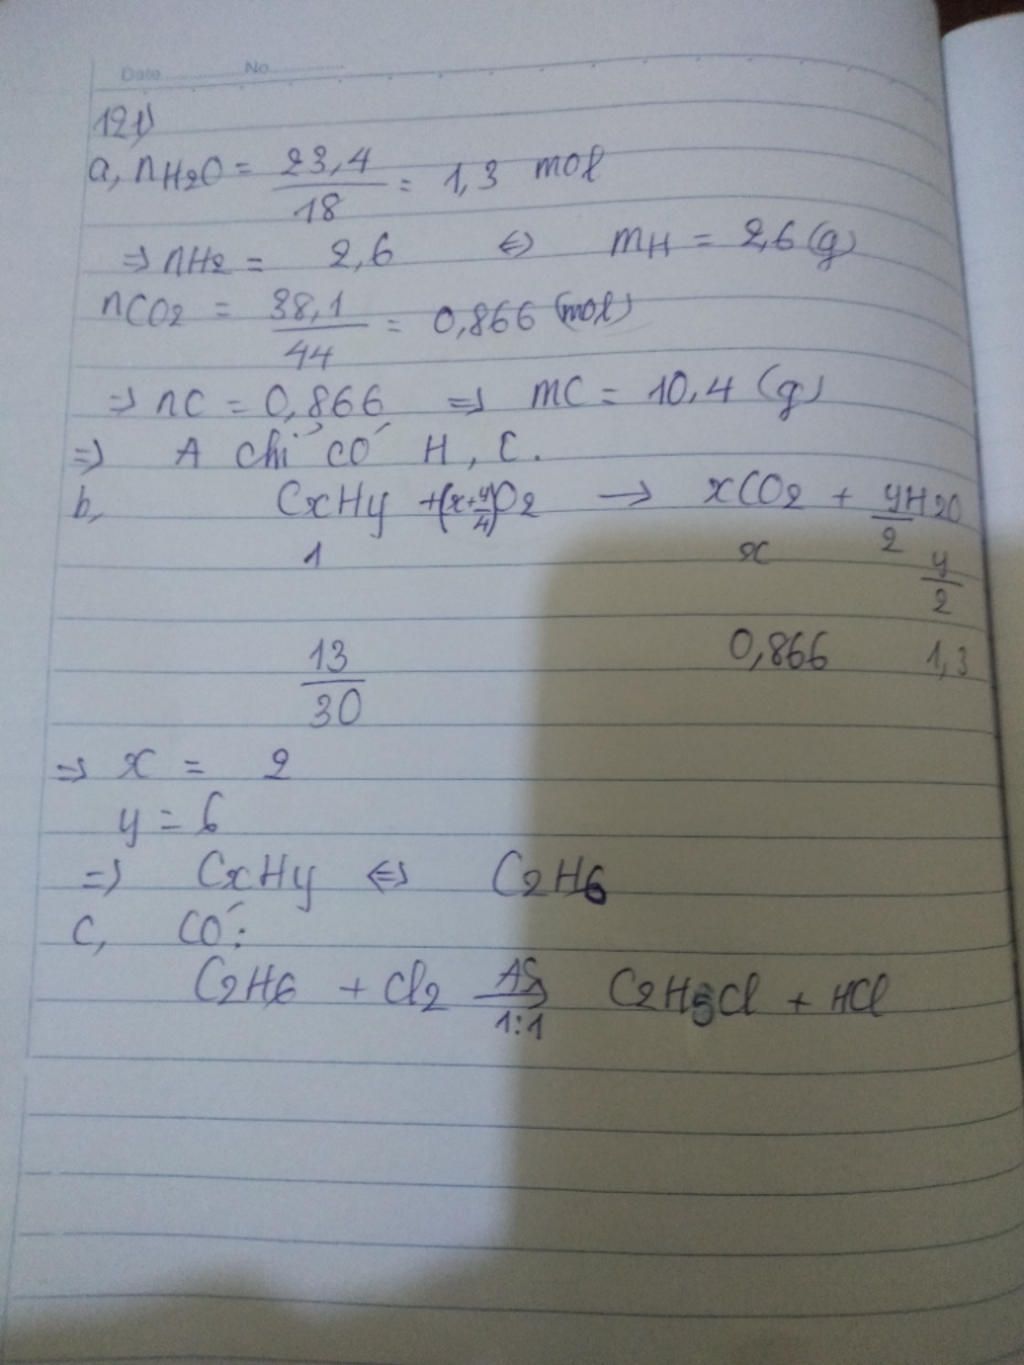 Date No
121)
a, nH2O = 23,4/18 = 1,3 mol
=> nH2 = 2,6 <=> mH = 2,6 (g)
nCO2 = 38,1/44 = 0,866 (mol)
=> nC = 0,866 => mC = 10,4 (g)
=> A chỉ có H, C.
b, CxHy + (x+y/4)O2 -> xCO2 + y/2 H2O
1 x y/2
13/30 0,866 1,3
=> x = 2
y = 6
=> CxHy <=> C2H6
c, Có:
C2H6 + Cl2 AS -> 1:1 C2H5Cl + HCl